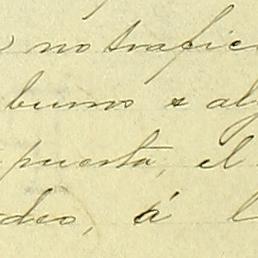 no trafic
bumo e al
puerta, el
deo, á l